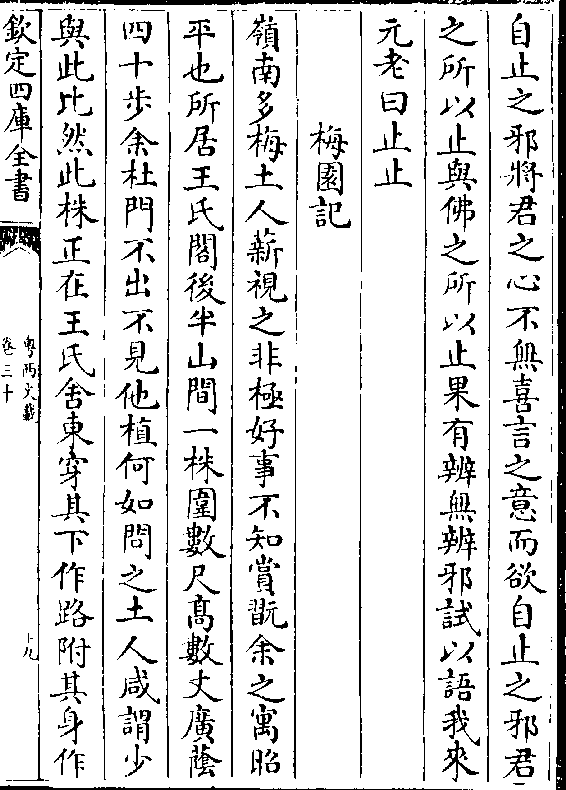 自止之邪將君之心不無喜言之意而欲自止之邪君
之所以止與佛之所以止果有辨無辨邪試以語我來
元老曰止止
梅園記
嶺南多梅土人薪視之非極好事不知賞翫余之寓昭
平也所居王氏閣後半山間一株圍數尺高數丈廣蔭
四十步余杜門不出不見他植何如問之土人咸謂少
與此比然此株正在王氏舍東穿其下作路附其身作
欽定四庫全書
粤西文載
卷三十
十九